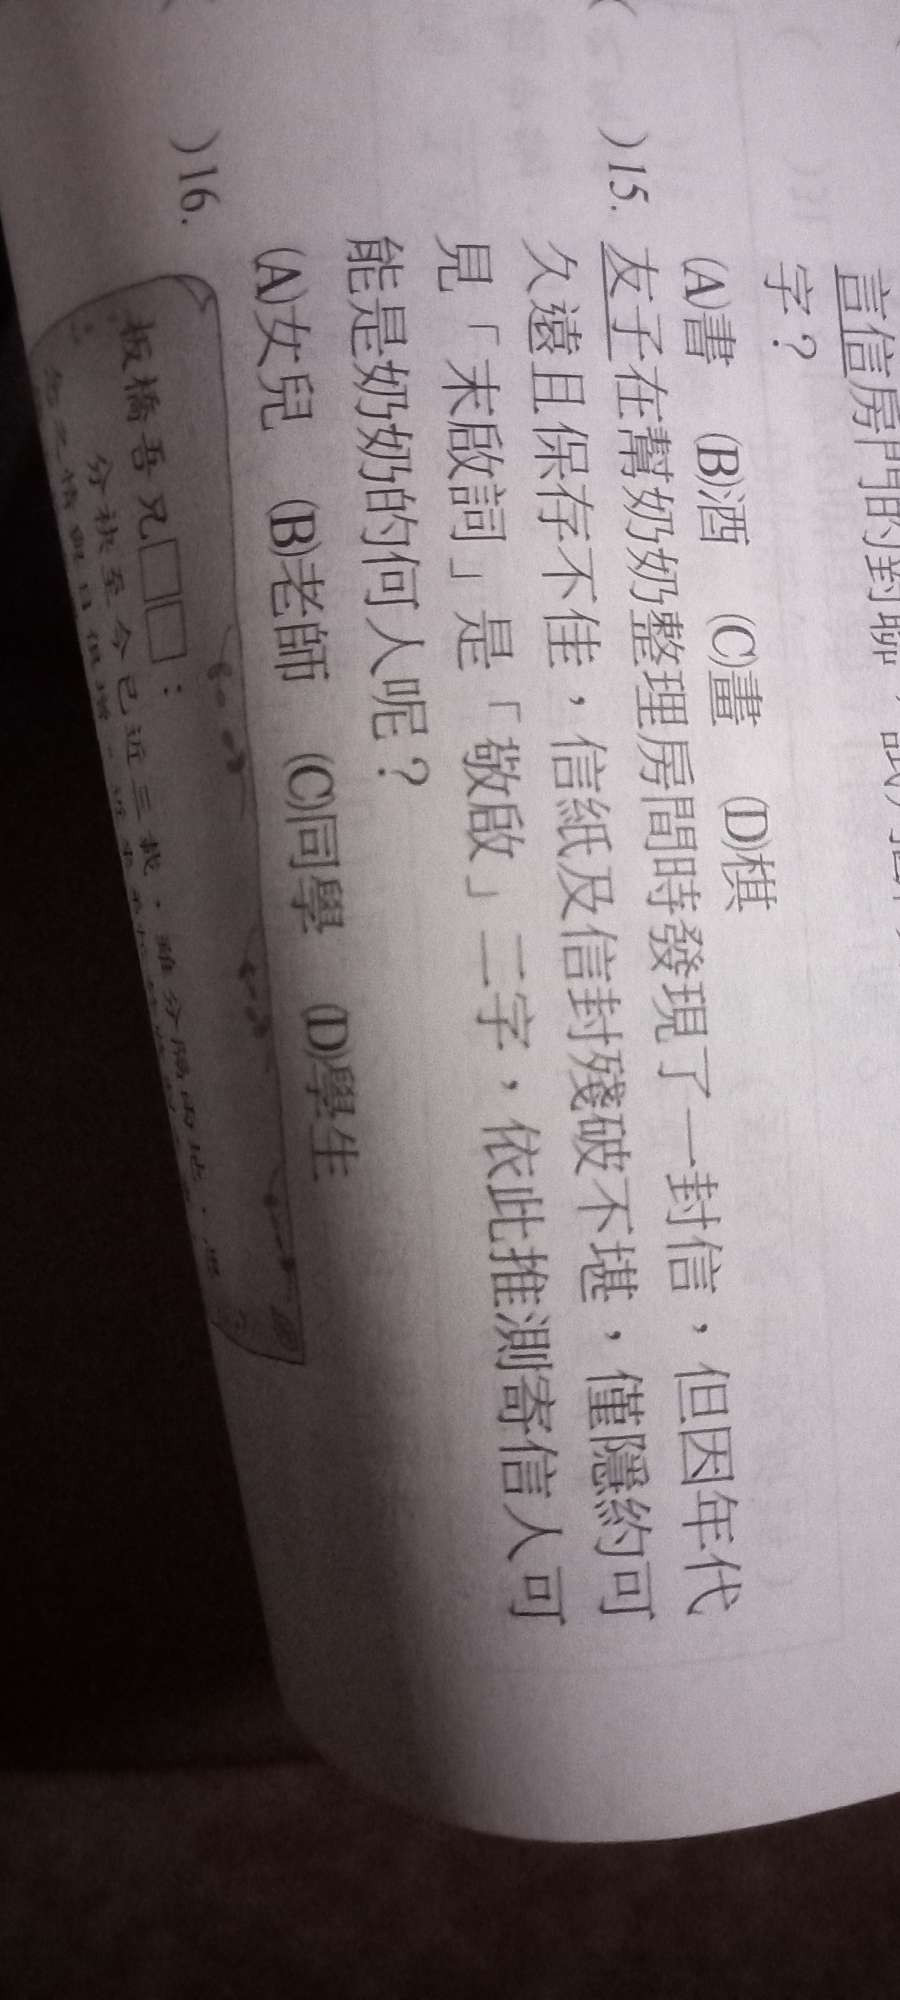 言信房門的對聯，試
字？
(A)書　(B)酒　(C)畫　(D)棋
)15. 友子在幫奶奶整理房間時發現了一封信，但因年代
久遠且保存不佳，信紙及信封殘破不堪，僅隱約可
見「末啟詞」是「敬啟」二字，依此推測寄信人可
能是奶奶的何人呢？
(A)女兒　(B)老師　(C)同學　(D)學生
)16.
板橋吾兄□□：
分袂至今已近三載，雖分隔兩地，